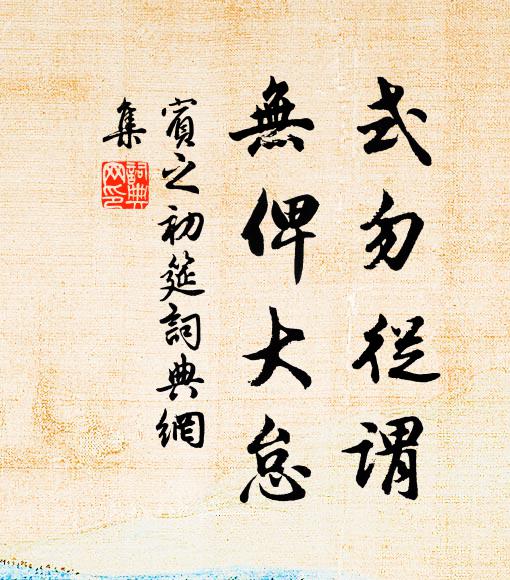 式勿從謂
無俾大怠
賓之初筵詞典網
集
詞典
网印